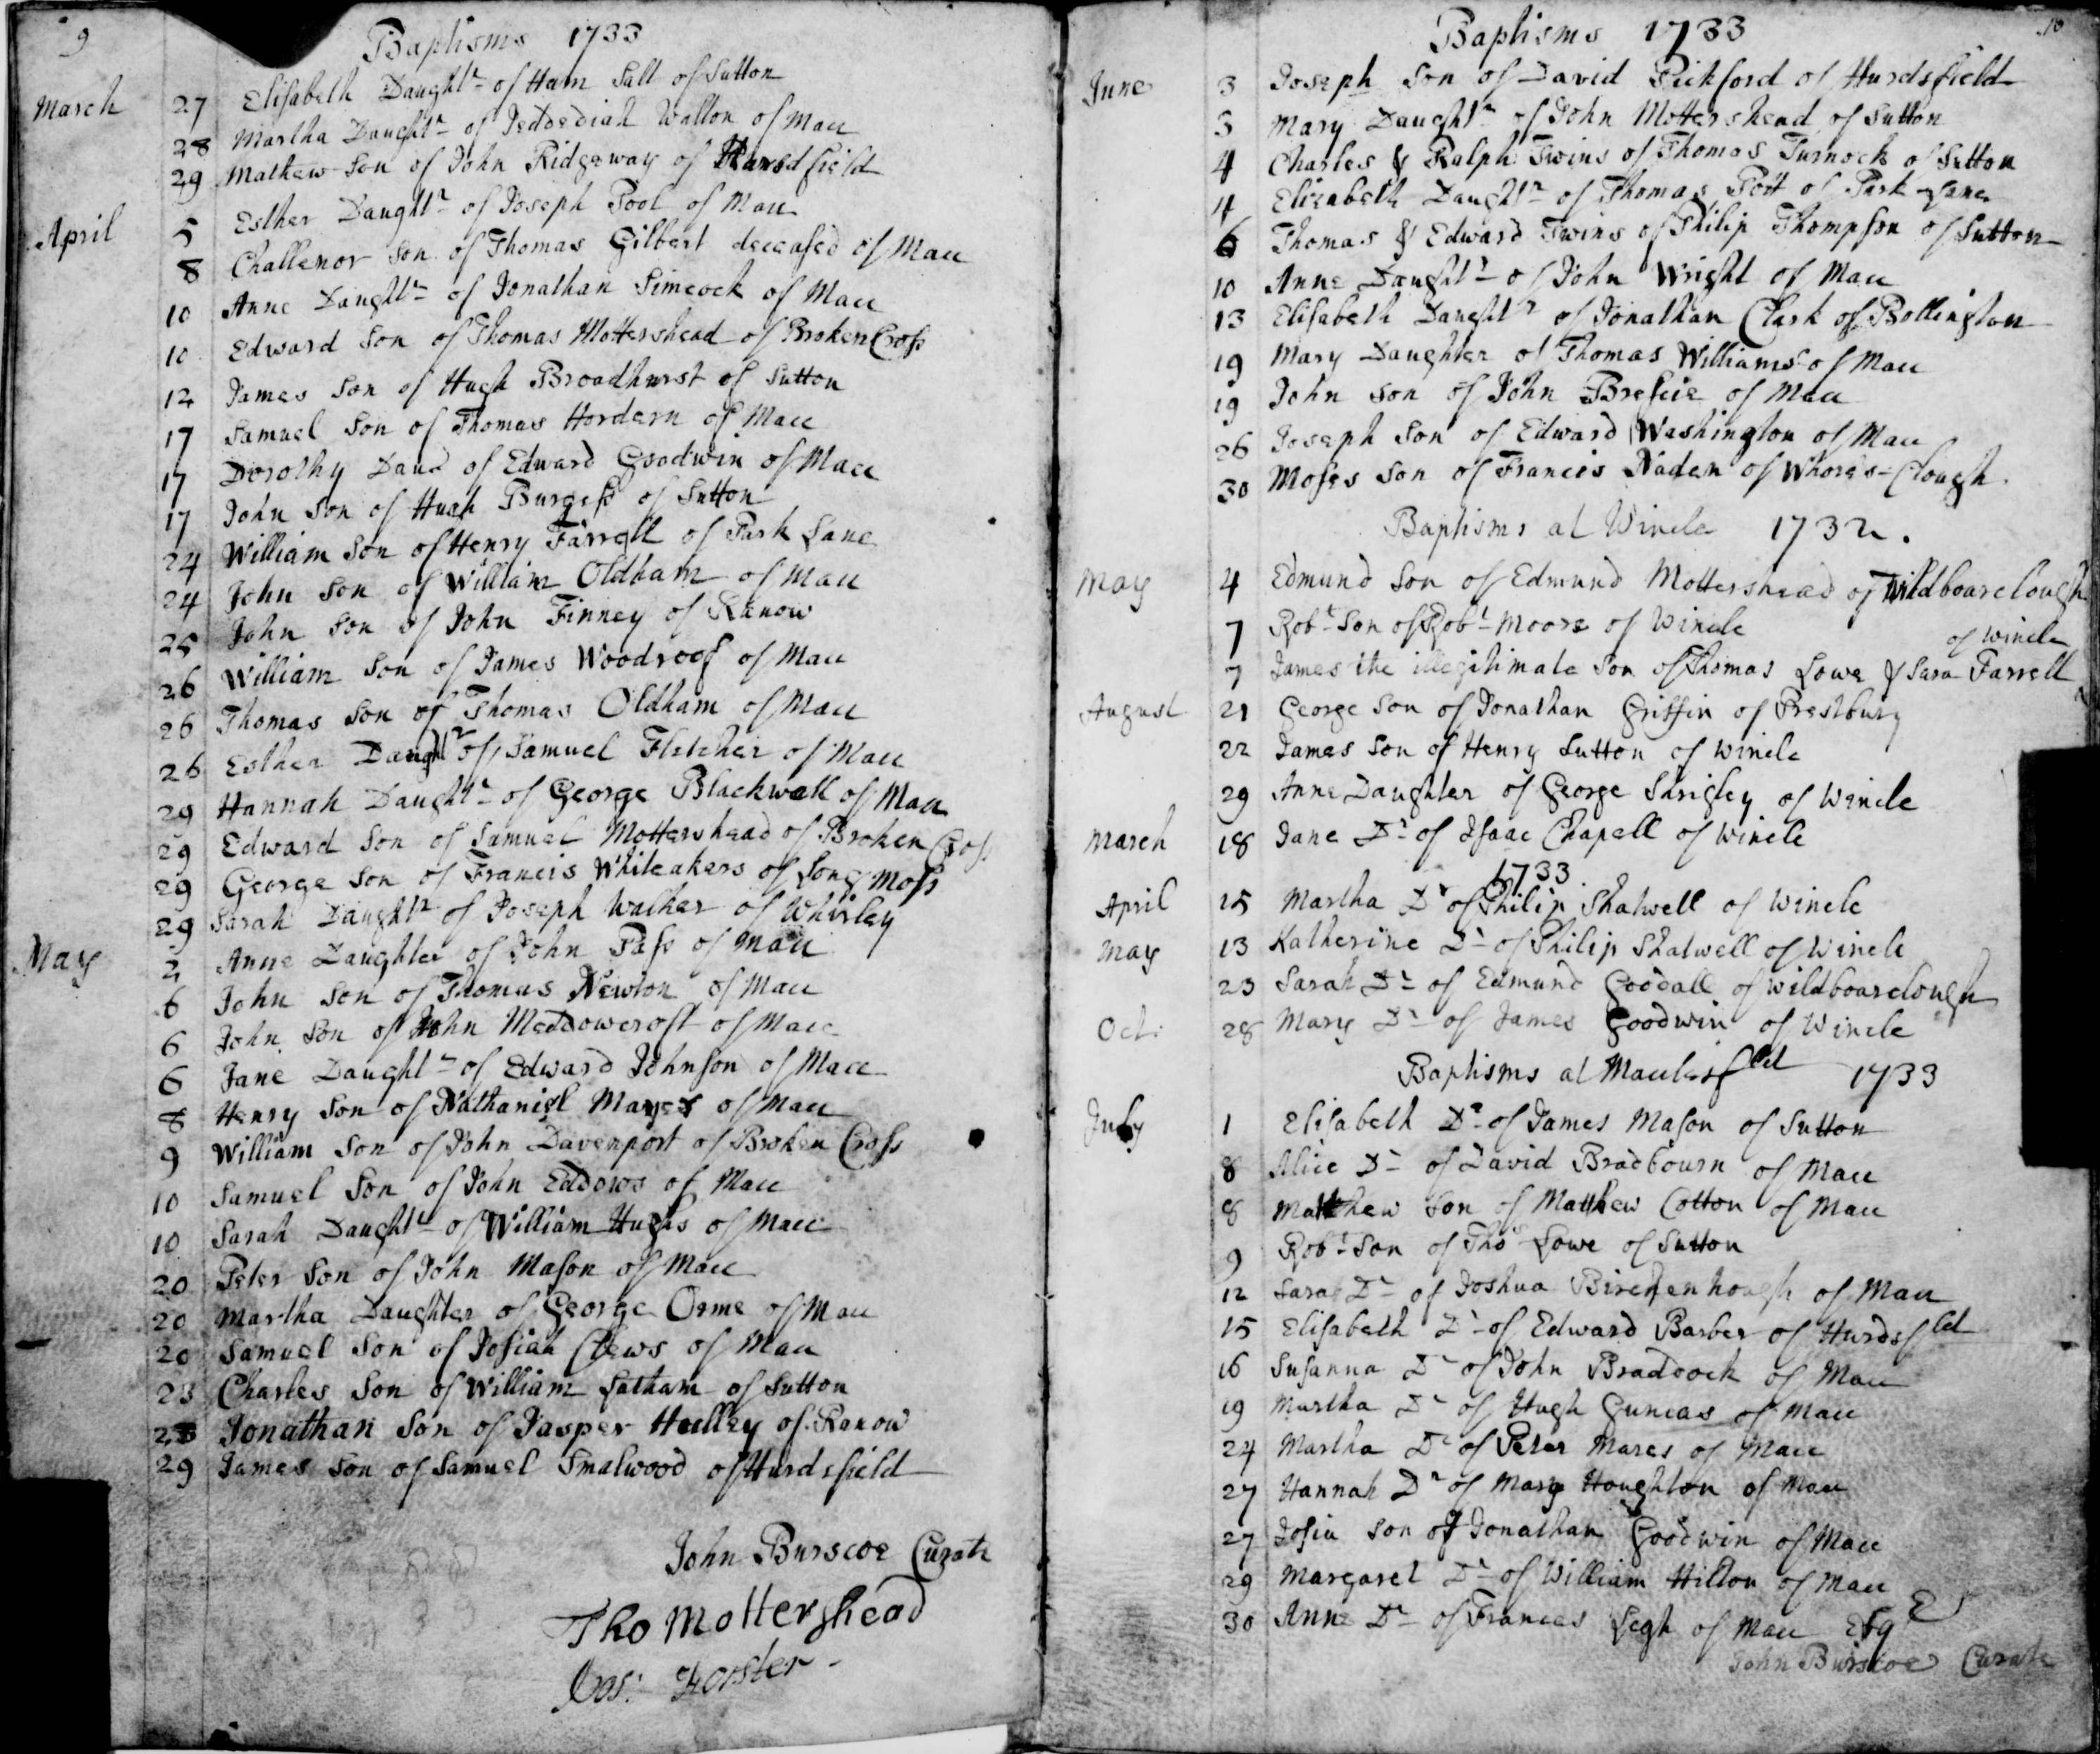 9
Baptisms 1733
March 27 Elisabeth Daughtr of Ham Salt of Sutton
28 Martha Daughtr of Jedediah Walton of Macc
29 Mathew Son of John Ridgeway of Hurdsfield
April 5 Esther Daughtr of Joseph Pool of Macc
8 Challenor Son of Thomas Gilbert deceased of Macc
10 Anne Daughtr of Jonathan Simcock of Macc
10 Edward Son of Thomas Mottershead of Broken Cross
12 James Son of Hugh Broadhurst of Sutton
17 Samuel Son of Thomas Hordern of Macc
17 Dorothy Daur of Edward Goodwin of Macc
17 John Son of Hugh Burgess of Sutton
24 William Son of Henry Farrell of Park Lane
24 John Son of William Oldham of Macc
25 John Son of John Finney of Ranow
26 William Son of James Woodroof of Macc
26 Thomas Son of Thomas Oldham of Macc
26 Esther Daughtr of Samuel Fletcher of Macc
29 Hannah Daughtr of George Blackwall of Macc
29 Edward Son of Samuel Mottershead of Broken Cross
29 George Son of Francis Whiteakers of Long Moss
29 Sarah Daughtr of Joseph Walker of Whirley
May 2 Anne Daughter of John Pass of Macc
6 John Son of Thomas Newton of Macc
6 John Son of John Meddowcroft of Macc
6 Jane Daughtr of Edward Johnson of Macc
8 Henry Son of Nathaniel Mayer of Macc
9 William Son of John Davenport of Broken Cross
10 Samuel Son of John Eddows of Macc
10 Sarah Daughtr of William Hughs of Macc
20 Peter Son of John Mason of Macc
20 Martha Daughter of George Orme of Macc
20 Samuel Son of Josiah Clews of Macc
23 Charles Son of William Latham of Sutton
Jonathan Son of Jasper Hulley of Ranow
29 James Son of Samuel Smalwood of Hurdsfield
John Burscoe Curate
Tho Mottershead
Jos: Forster
10
Baptisms 1733
June 3 Joseph Son of David Pickford of Hurdsfield
3 Mary Daughtr of John Mottershead of Sutton
4 Charles & Ralph Twins of Thomas Turnock of Sutton
4 Elizabeth Daughtr of Thomas Pott of Park Lane
6 Thomas & Edward Twins of Philip Thompson of Sutton
10 Anne Daughtr of John Wright of Macc
13 Elisabeth Daughtr of Jonathan Clark of Bollington
19 Mary Daughter of Thomas Williams of Macc
19 John Son of John Brescie of Macc
26 Joseph Son of Edward Washington of Macc
30 Moses Son of Francis Naden of Whore's-Clough
Baptisms at Wincle 1732.
May 4 Edmund Son of Edmund Mottershead of Wildboarclough
7 Robt Son of Robt Moors of Wincle
7 James the illegitimate Son of Thomas Lowe & Sara Farrell of Wincle
August 21 George Son of Jonathan Griffin of Prestbury
22 James Son of Henry Sutton of Wincle
29 Anne Daughter of George Shrigley of Wincle
March 18 Jane Dr of Isaac Chapell of Wincle
1733.
April 15 Martha Dr of Philip Shatwell of Wincle
May 13 Katherine Dr of Philip Shatwell of Wincle
23 Sarah Dr of Edmund Goodall of Wildboarclough
Oct: 28 Mary Dr of James Goodwin of Wincle
Baptisms at Maclesfeld 1733
July 1 Elisabeth Dr of James Mason of Sutton
8 Alice Dr of David Bradbourn of Macc
8 Matthew Son of Matthew Cotton of Macc
9 Robt Son of Thos Lowe of Sutton
12 Sara Dr of Joshua Birchenhough of Macc
15 Elisabeth Dr of Edward Barber of Hurdsfeld
16 Susanna Dr of John Braddock of Macc
19 Martha Dr of Hugh Guneas of Macc
24 Martha Dr of Peter Mares of Macc
27 Hannah Dr of Mary Houghton of Macc
27 Josia Son of Jonathan Goodwin of Macc
29 Margaret Dr of William Hilton of Macc
30 Anne Dr of Frances Legh of Macc Esqr
John Burscoe Curate